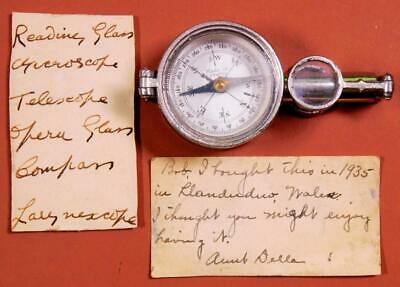 Reading Glass
Microscope
Telescope
Opera Glass
Compass
Larynxscope
Bob, I bought this in 1935
in Llandudno, Wales.
I thought you might enjoy
having it.
Aunt Della